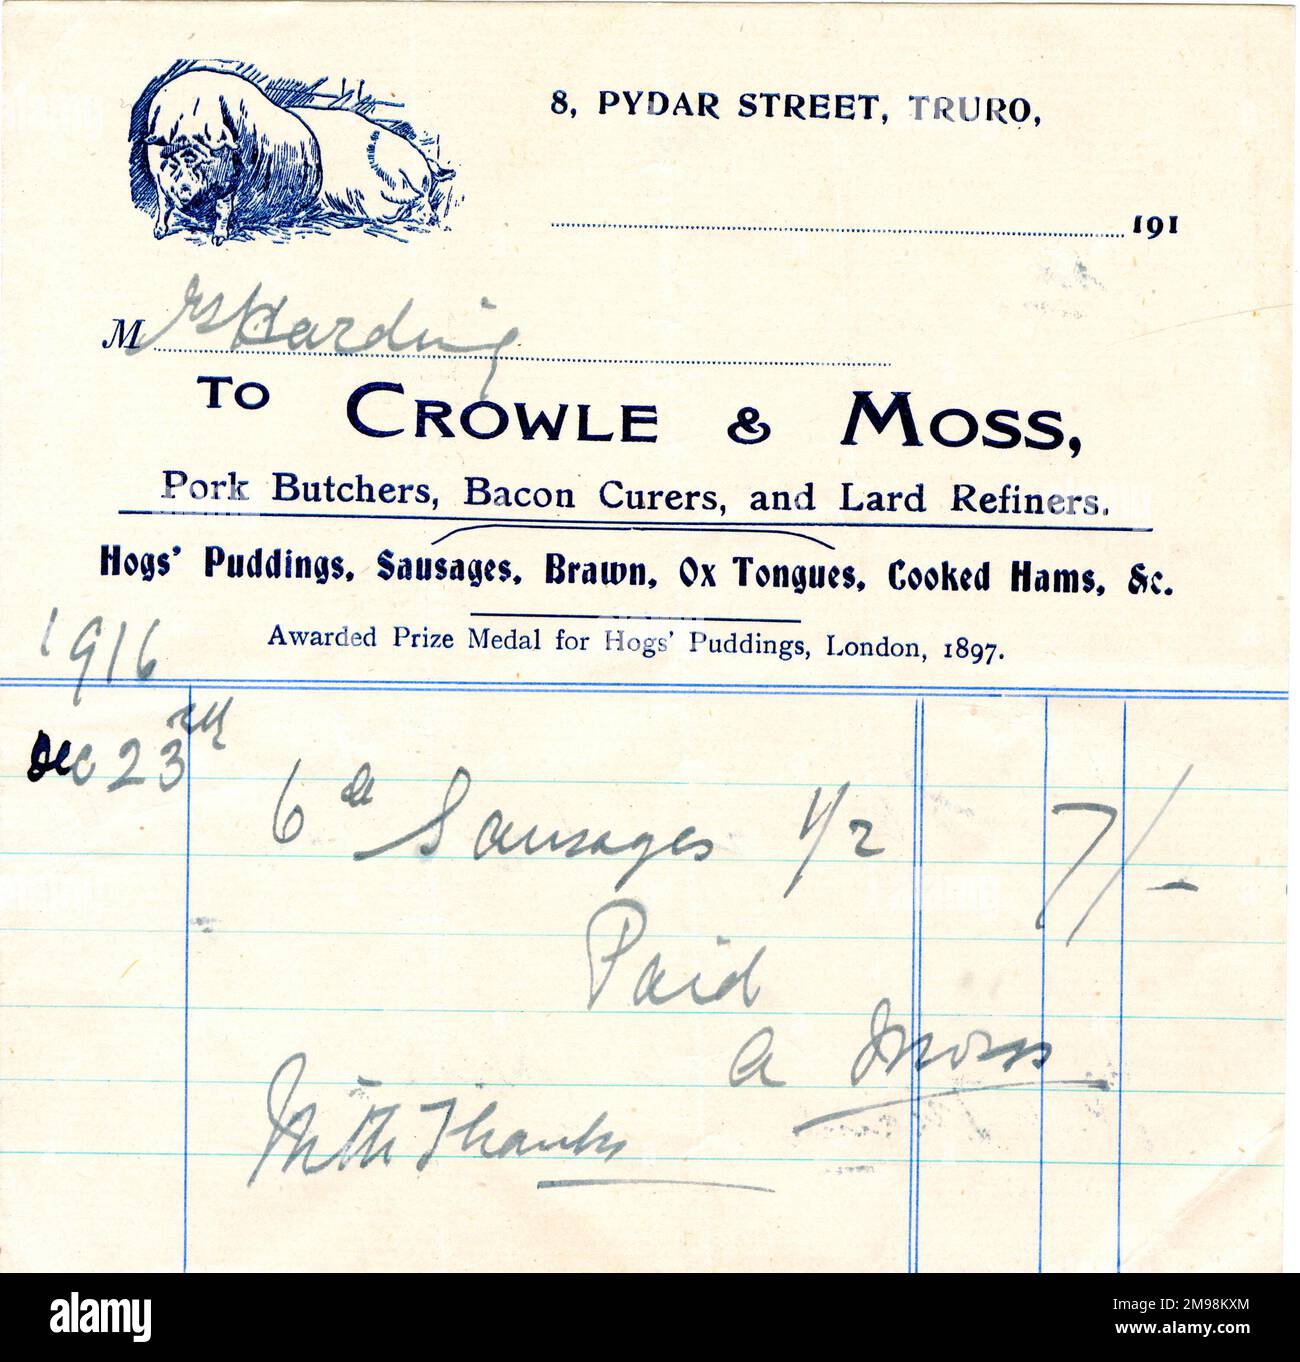 8, PYDAR STREET, TRURO,
191
Mrs Harding
To CROWLE & MOSS,
Pork Butchers, Bacon Curers, and Lard Refiners.
Hogs' Puddings, Sausages, Brawn, Ox Tongues, Cooked Hams, &c.
Awarded Prize Medal for Hogs' Puddings, London, 1897.
1916
Dec 23rd
6 lb Sausages 1/2 7/-
Paid
A Moss
With Thanks
alamy
Image ID: 2M98KXM
www.alamy.com